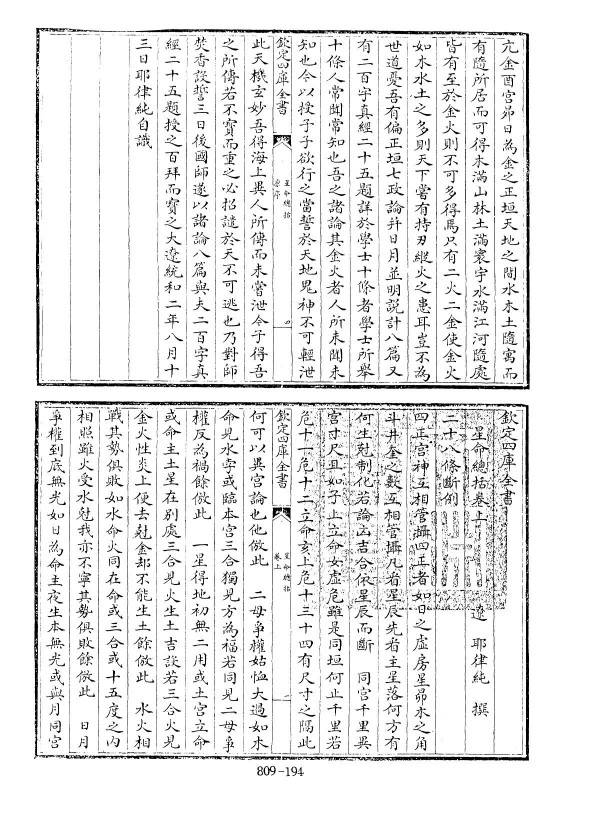 亢金酉宮昴日為金之正垣天地之間水木土隨寓而
有隨所居而可得木滿山林土滿寰宇水滿江河隨處
皆有至於金火則不可多得焉只有二火二金使金火
如木水土之多則天下嘗有持刃縱火之患耳豈不為
世道憂吾有偏正垣七政論并日月並明説計八篇又
有二百字真經二十五題詳於學士十條者學士所舉
十條人常聞常知也吾之諸論其金火者人所未聞未
知也今以授子子欲行之當誓於天地鬼神不可輕泄
欽定四庫全書
星命總括
原序
四
此天機玄妙吾得海上異人所傳而未嘗泄今子得吾
之所傳若不寳而重之必招譴於天不可逃也乃對師
焚香設誓三日後國師遂以諸論八篇與夫二百字真
經二十五題授之百拜而寳之大遼統和二年八月十
三日耶律純自識
欽定四庫全書
星命總括卷上
遼 耶律純 撰
二十八條斷例
四正宮神互相管攝四正者如日之虛房星昴木之角
斗井奎之數互相管攝凡看星辰先看主星落何方有
何生尅制化若論凶吉合依星辰而斷 同宮千里異
宮寸尺且如子上立命女虛危雖是同垣何止千里若
危十一危十二立命亥上危十三十四有尺寸之隔此
欽定四庫全書
星命總括
卷上
一
何可以異宮論也他倣此 二母爭權姑恤大過如木
命見水孛或臨本宮三合獨見方為福若同見二母爭
權反為禍餘倣此 一星得地初無二用或土宮立命
或命主土星在別處三合見火生土吉談若三合火見
金火性炎上便去尅金却不能生土餘倣此 水火相
戰其勢俱敗如水命火同在命或三合或十五度之内
相照雖火受水尅我亦不寧其勢俱敗餘倣此 日月
爭權到底無光如日為命主夜生本無光或與月同宮
809-194